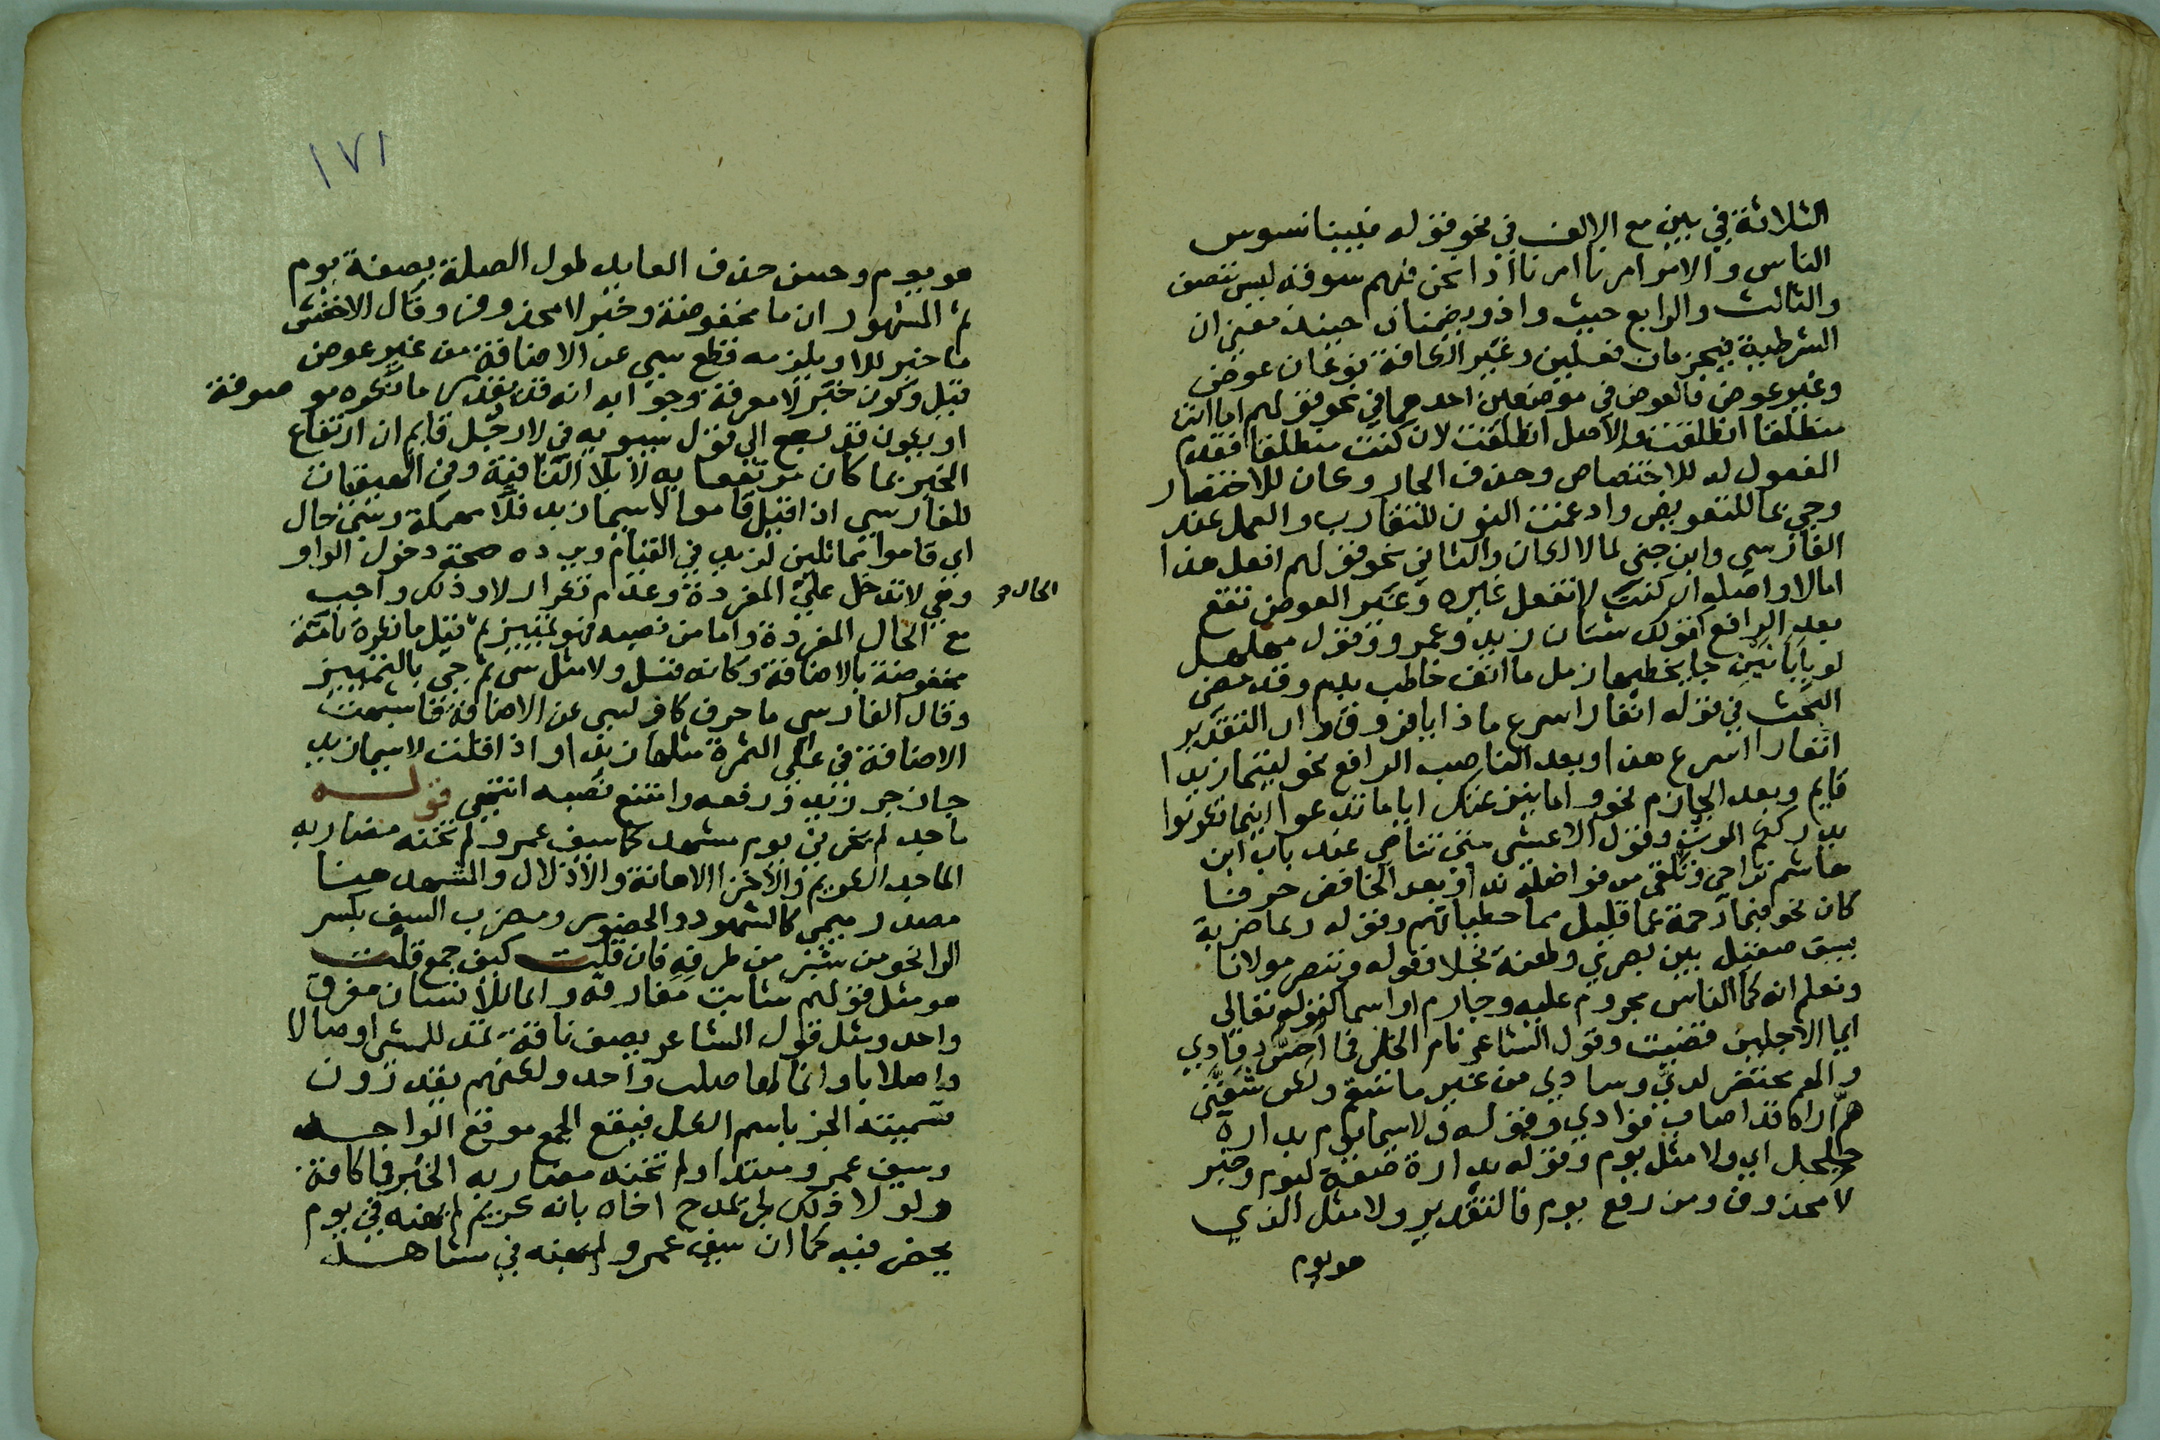 الثلاثة في بين مع الالف في نحو قوله فبينا نسوس
الناس والامر امرنا اذا نحن فيهم سوقة ليس ننصف
والثالث والرابع حيث واذ ويضمنان حينئذ معنى ان
الشرطية فيجزمان فعلين وغير الكافة نوعان عوض
وغير عوض فالعوض في موضعين احدهما في نحو قولهم اما انت
منطلقا انطلقت والاصل انطلقت لان كنت منطلقا فقدم
المفعول له للاختصاص وحذف الجار وكان للاختصار
وجي بما للتعويض وادغمت النون للتقارب والعمل عند
الفارسي وابن جني لما لا لكان والثاني نحو قولهم افعل هذا
اما لا واصله ان كنت لا تفعل غيره وغير العوض تقع
بعد الرافع كقولك شتان ما زيد وعمرو وقول مهلهل
لو بابانين جا يخطبها زمل ما انف خاطب بدم وقد مضى
البحث في قوله انفارا اسرع ماذا يا فروق وان التقدير
انفارا اسرع هذا وبعد الناصب الرافع نحو ليتما زيدا
قايم وبعد الجازم نحو واما ينزغنك اياما تدعوا اينما تكونوا
يدرككم الموت وقول الاعشى متى تناخي عند باب ابن
هاشم تراحي وتلقي من فواضله ندا وبعد الخافض حرفا
كان نحو فبما رحمة عما قليل مما خطيئاتهم وقوله ربما ضربة
بسيف صقيل بين بصرى وطعنة نجلا وقوله وننصر مولانا
ونعلم انه كما الناس مجروم عليه وجارم او اسما كقوله تعالى
ايما الاجلين قضيت وقول الشاعر نام الخلي فما احس رقادي
والهم محتضر لدي وسادي من غير ما سقم ولكن شفني
هم اراه قد اصاب فؤادي وقوله ولا سيما يوم بدارة
جلجل اي ولا مثل يوم وقوله بدارة صفة ليوم وخبر
لا محذوف ومن رفع يوم فالتقدير ولا مثل الذي
هو يوم
١٧١
هو يوم وحسن حذف العايد لطول الصلة بصفة يوم
ثم المشهور ان ما مخفوضة وخبر لا محذوف وقال الاخفش
ما خبر للا ويلزمه قطع سي عن الاضافة من غير عوض
قيل وكون خبر لا معرفة وجوابه انه قد يقدر ما نكره موصوفة
او يكون قد رجع الى قول سيبويه في لا رجل قايم ان ارتفاع
الخبر بما كان مرتفعا به لا بلا النافية وفي الهيتيات
للفارسي اذا قيل قاموا لا سيما زيد فلا مهملة وسي حال
اي قاموا مماثلين لزيد في القيام ويرده صحة دخول الواو
وهي لا تدخل على المفردة وعدم تكرار لا وذلك واجب
الحال و
مع الحال المفردة واما من نصبه فهو تمييز ثم قيل ما نكرة تامة
مخفوضة بالاضافة وكانه قيل ولا مثل شي ثم جي بالتمييز
وقال الفارسي ما حرف كاف لسي عن الاضافة فاشبهت
الاضافة في على التمرة مثلها زبدا واذا قلت لا سيما زيد
جاز جر زيد ورفعه وامتنع نصبه انتهى قوله
ماجد لم يخزني يوم مشهد كما سيف عمرو لم تخنه مضاربه
الماجد الكريم والاخزا الاهانة والاذلال والمشهد هنا
مصدر ميمي كالشهود والحضور ومضرب السيف بكسر
الرا نحو من شبر من طرفه فان قلت كيف جمع قلت
هو مثل قولهم شابت مفارقه وانما للانسان مفرق
واحد ومثل قول الشاعر يصف ناقة تمد للمشي اوصالا
واصلابا وانما لها صلب واحد ولكنهم يقدرون
تسمية الجز باسم الكل فيقع الجمع موقع الواحد
وسيف عمرو مبتدا ولم تخنه مضاربه الخبر فما كافة
ولولا ذلك لجر يمدح اخاه بانه كريم لم يهنه في يوم
يحضر فيه كما ان سيف عمرو لم يهنه في مشاهد